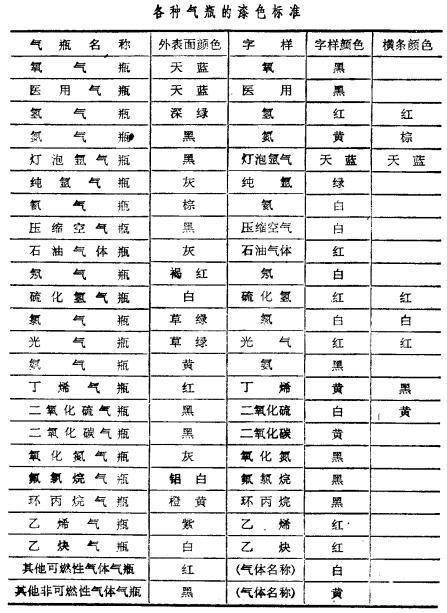 各种气瓶的漆色标准
气瓶名称 外表面颜色 字样 字样颜色 横条颜色
氧气瓶 天蓝 氧 黑
医用气瓶 天蓝 医用 黑
氢气瓶 深绿 氢 红 红
氮气瓶 黑 氮 黄 棕
灯泡氩气瓶 黑 灯泡氩气 天蓝 天蓝
纯氩气瓶 灰 纯氩 绿
氦气瓶 棕 氦 白
压缩空气瓶 黑 压缩空气 白
石油气体瓶 灰 石油气体 红
氖气瓶 褐红 氖 白
硫化氢气瓶 白 硫化氢 红 红
氯气瓶 草绿 氯 白 白
光气瓶 草绿 光气 红 红
氨气瓶 黄 氨 黑
丁烯气瓶 红 丁烯 黄 黑
二氧化硫气瓶 黑 二氧化硫 白 黄
二氧化碳气瓶 黑 二氧化碳 黄
氧化氮气瓶 灰 氧化氮 黑
氟氯烷气瓶 铝白 氟氯烷 黑
环丙烷气瓶 橙黄 环丙烷 黑
乙烯气瓶 紫 乙烯 红
乙炔气瓶 白 乙炔 红
其他可燃性气体气瓶 红 (气体名称) 白
其他非可燃性气体气瓶 黑 (气体名称) 黄